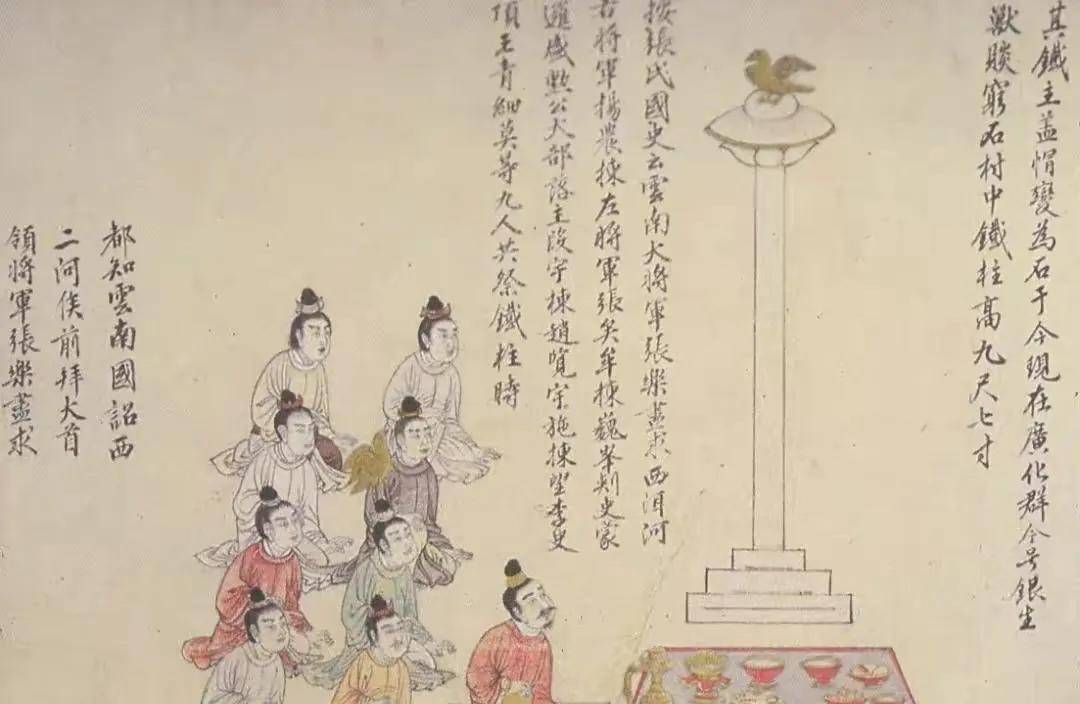 其鐵主盖帽變為石于今現在廣化群今号銀生
獸賧窮石村中鐵柱高九尺七寸
按張氏國史云雲南大將軍張樂盡求西洱河
右將軍楊農揀左將軍張矣牟揀巍峯刾史蒙
邏盛勲公大部落主段宇棟趙覽宇施揀望李史
頂王青細莫等九人共祭鐵柱時
都知雲南國詔西
二河侯前拜大首
領將軍張樂盡求